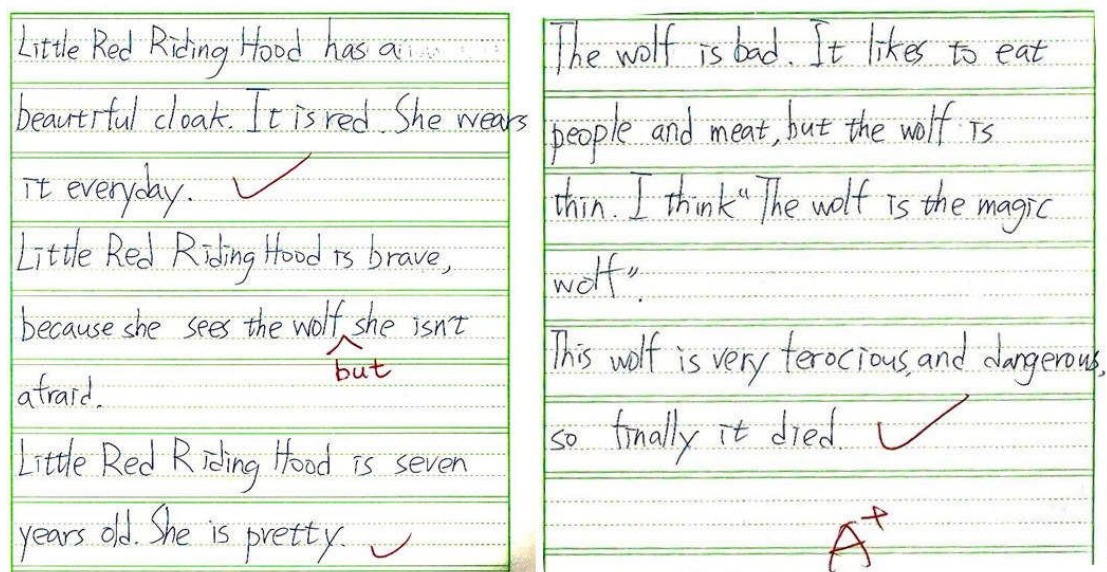 Little Red Riding Hood has a
beautiful cloak. It is red. She wears
it everyday.
Little Red Riding Hood is brave,
because she sees the wolf she isn't
but
afraid.
Little Red Riding Hood is seven
years old. She is pretty.
The wolf is bad. It likes to eat
people and meat, but the wolf is
thin. I think "The wolf is the magic
wolf".
This wolf is very ferocious, and dangerous,
so finally it died.
A+